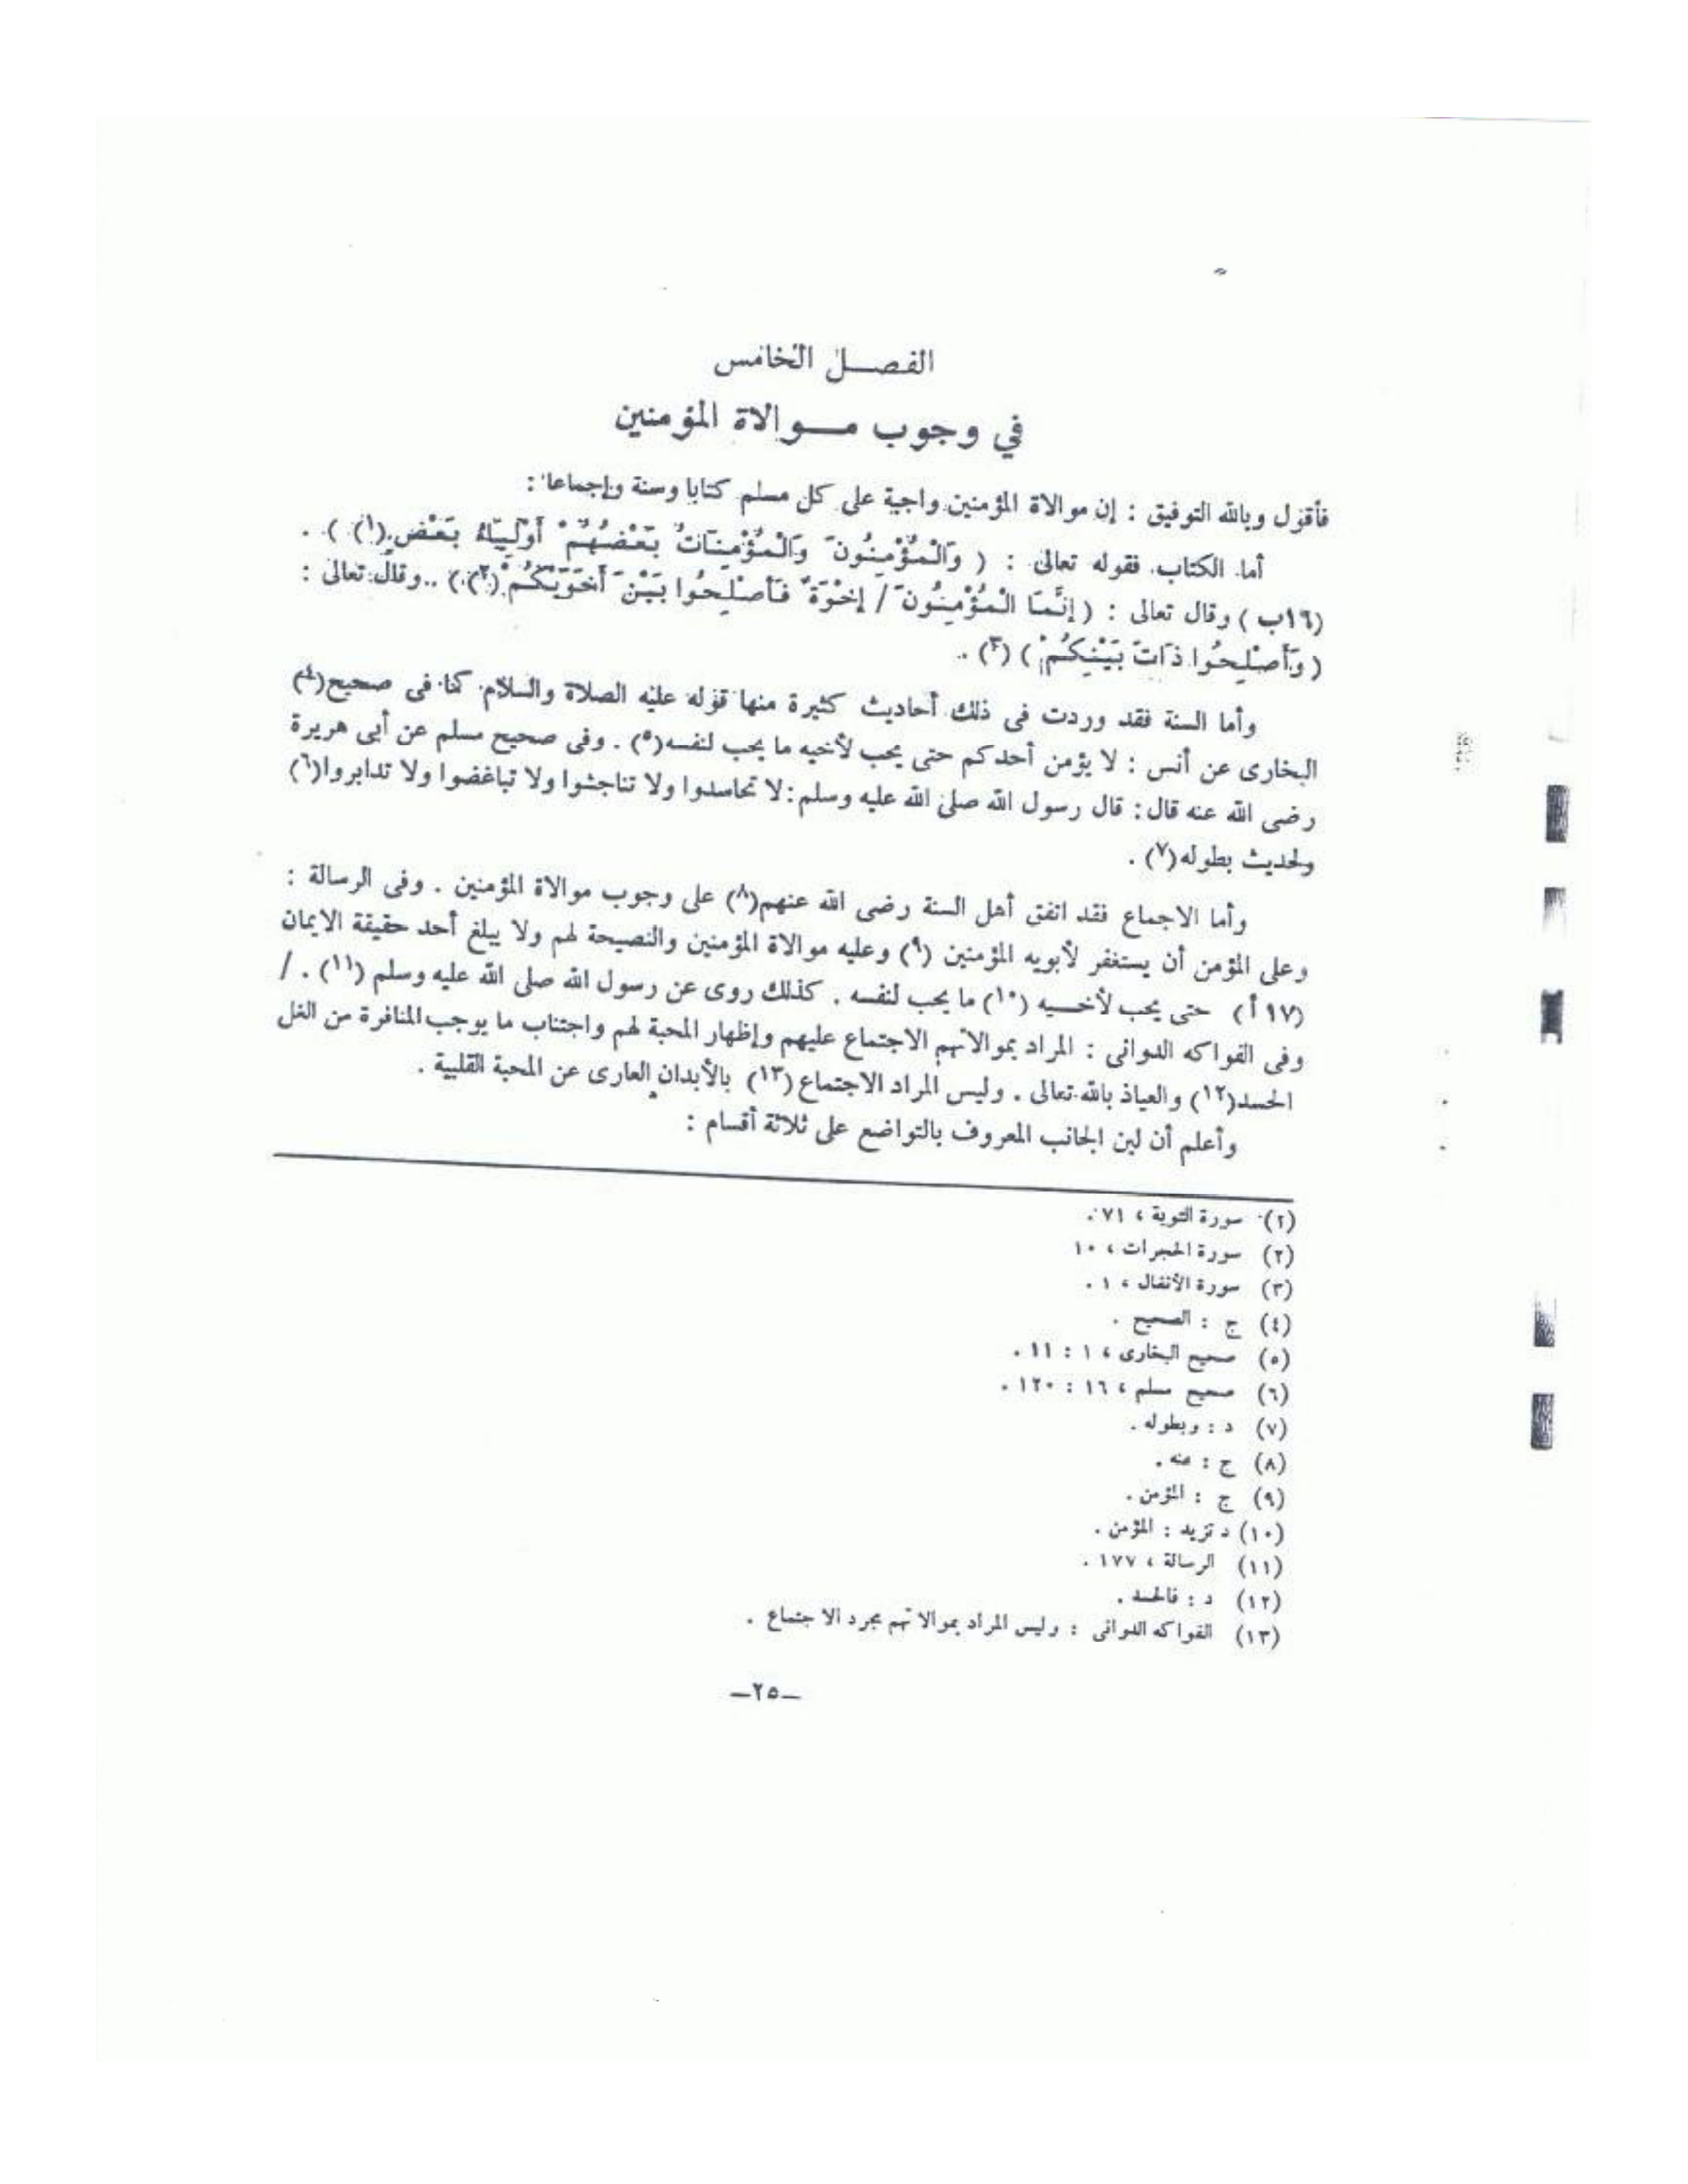 الفصـــل الخامس
في وجوب مــــوالاة المؤمنين
فأقول وبالله التوفيق : إن موالاة المؤمنين واجبة على كل مسلم كتابا وسنة وإجماعا :
أما الكتاب فقوله تعالى : ( وَالْمُؤْمِنُونَ وَالْمُؤْمِنَاتُ بَعْضُهُمْ أَوْلِيَاءُ بَعْضٍ(١) ) .
(١٦ب) وقال تعالى : ( إِنَّمَا الْمُؤْمِنُونَ / إِخْوَةٌ فَأَصْلِحُوا بَيْنَ أَخَوَيْكُمْ(٢) ) .. وقال تعالى :
( وَأَصْلِحُوا ذَاتَ بَيْنِكُمْ ) (٣) ..
وأما السنة فقد وردت فى ذلك أحاديث كثيرة منها قوله عليه الصلاة والسلام كما فى صحيح(٤)
البخارى عن أنس : لا يؤمن أحدكم حتى يحب لأخيه ما يحب لنفسه(٥) . وفى صحيح مسلم عن أبى هريرة
رضى الله عنه قال : قال رسول الله صلى الله عليه وسلم : لا تحاسدوا ولا تناجشوا ولا تباغضوا ولا تدابروا(٦)
ولحديث بطوله(٧) .
وأما الاجماع فقد اتفق أهل السنة رضى الله عنهم(٨) على وجوب موالاة المؤمنين . وفى الرسالة :
وعلى المؤمن أن يستغفر لأبويه المؤمنين (٩) وعليه موالاة المؤمنين والنصيحة لهم ولا يبلغ أحد حقيقة الايمان
(١٧ أ) حتى يحب لأخـــيه (١٠) ما يحب لنفسه . كذلك روى عن رسول الله صلى الله عليه وسلم (١١) . /
وفى الفواكه الدوانى : المراد بموالاتهم الاجتماع عليهم وإظهار المحبة لهم واجتناب ما يوجب المنافرة من الغل
الحسد(١٢) والعياذ بالله تعالى . وليس المراد الاجتماع (١٣) بالأبدان العارى عن المحبة القلبية .
وأعلم أن لين الجانب المعروف بالتواضع على ثلاثة أقسام :
(٢) سورة التوبة ، ٧١ .
(٢) سورة الحجرات ، ١٠
(٣) سورة الأنفال ، ١ .
(٤) ج : الصحيح .
(٥) صحيح البخارى ، ١ : ١١ .
(٦) صحيح مسلم ، ١٦ : ١٢٠ .
(٧) د : وبطوله .
(٨) ج : عنه .
(٩) ج : المؤمن .
(١٠) د تزيد : المؤمن .
(١١) الرسالة ، ١٧٧ .
(١٢) د : فالحسد .
(١٣) الفواكه الدوانى : وليس المراد بموالاتهم مجرد الاجتماع .
—٢٥—